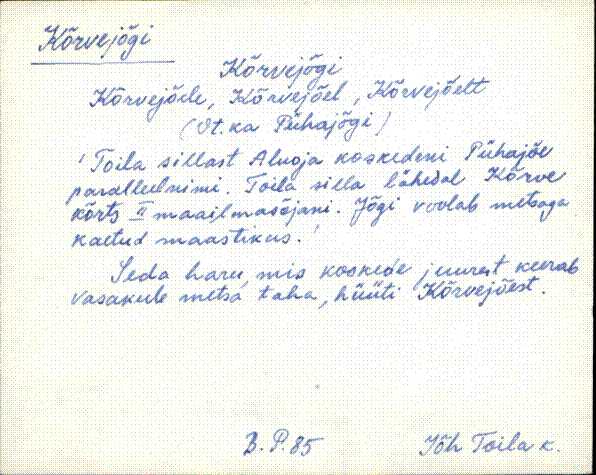 Kõrvejõgi
Kõrvejõgi
Kõrvejõele, Kõrvejõel, Kõrvejõelt
(Vt. ka Pühajõgi)
'Toila sillast Aluoja koskedeni Pühajõe
paralleelnimi. Toila silla lähedal Kõrve
kõrts II maailmasõjani. Jõgi voolab metsaga
kaetud maastikus.'
Seda haru, mis koskede juurest keerab
vasakule metsa taha, hüüti Kõrvejõest.
B. P. 85
Jõh Toila k.